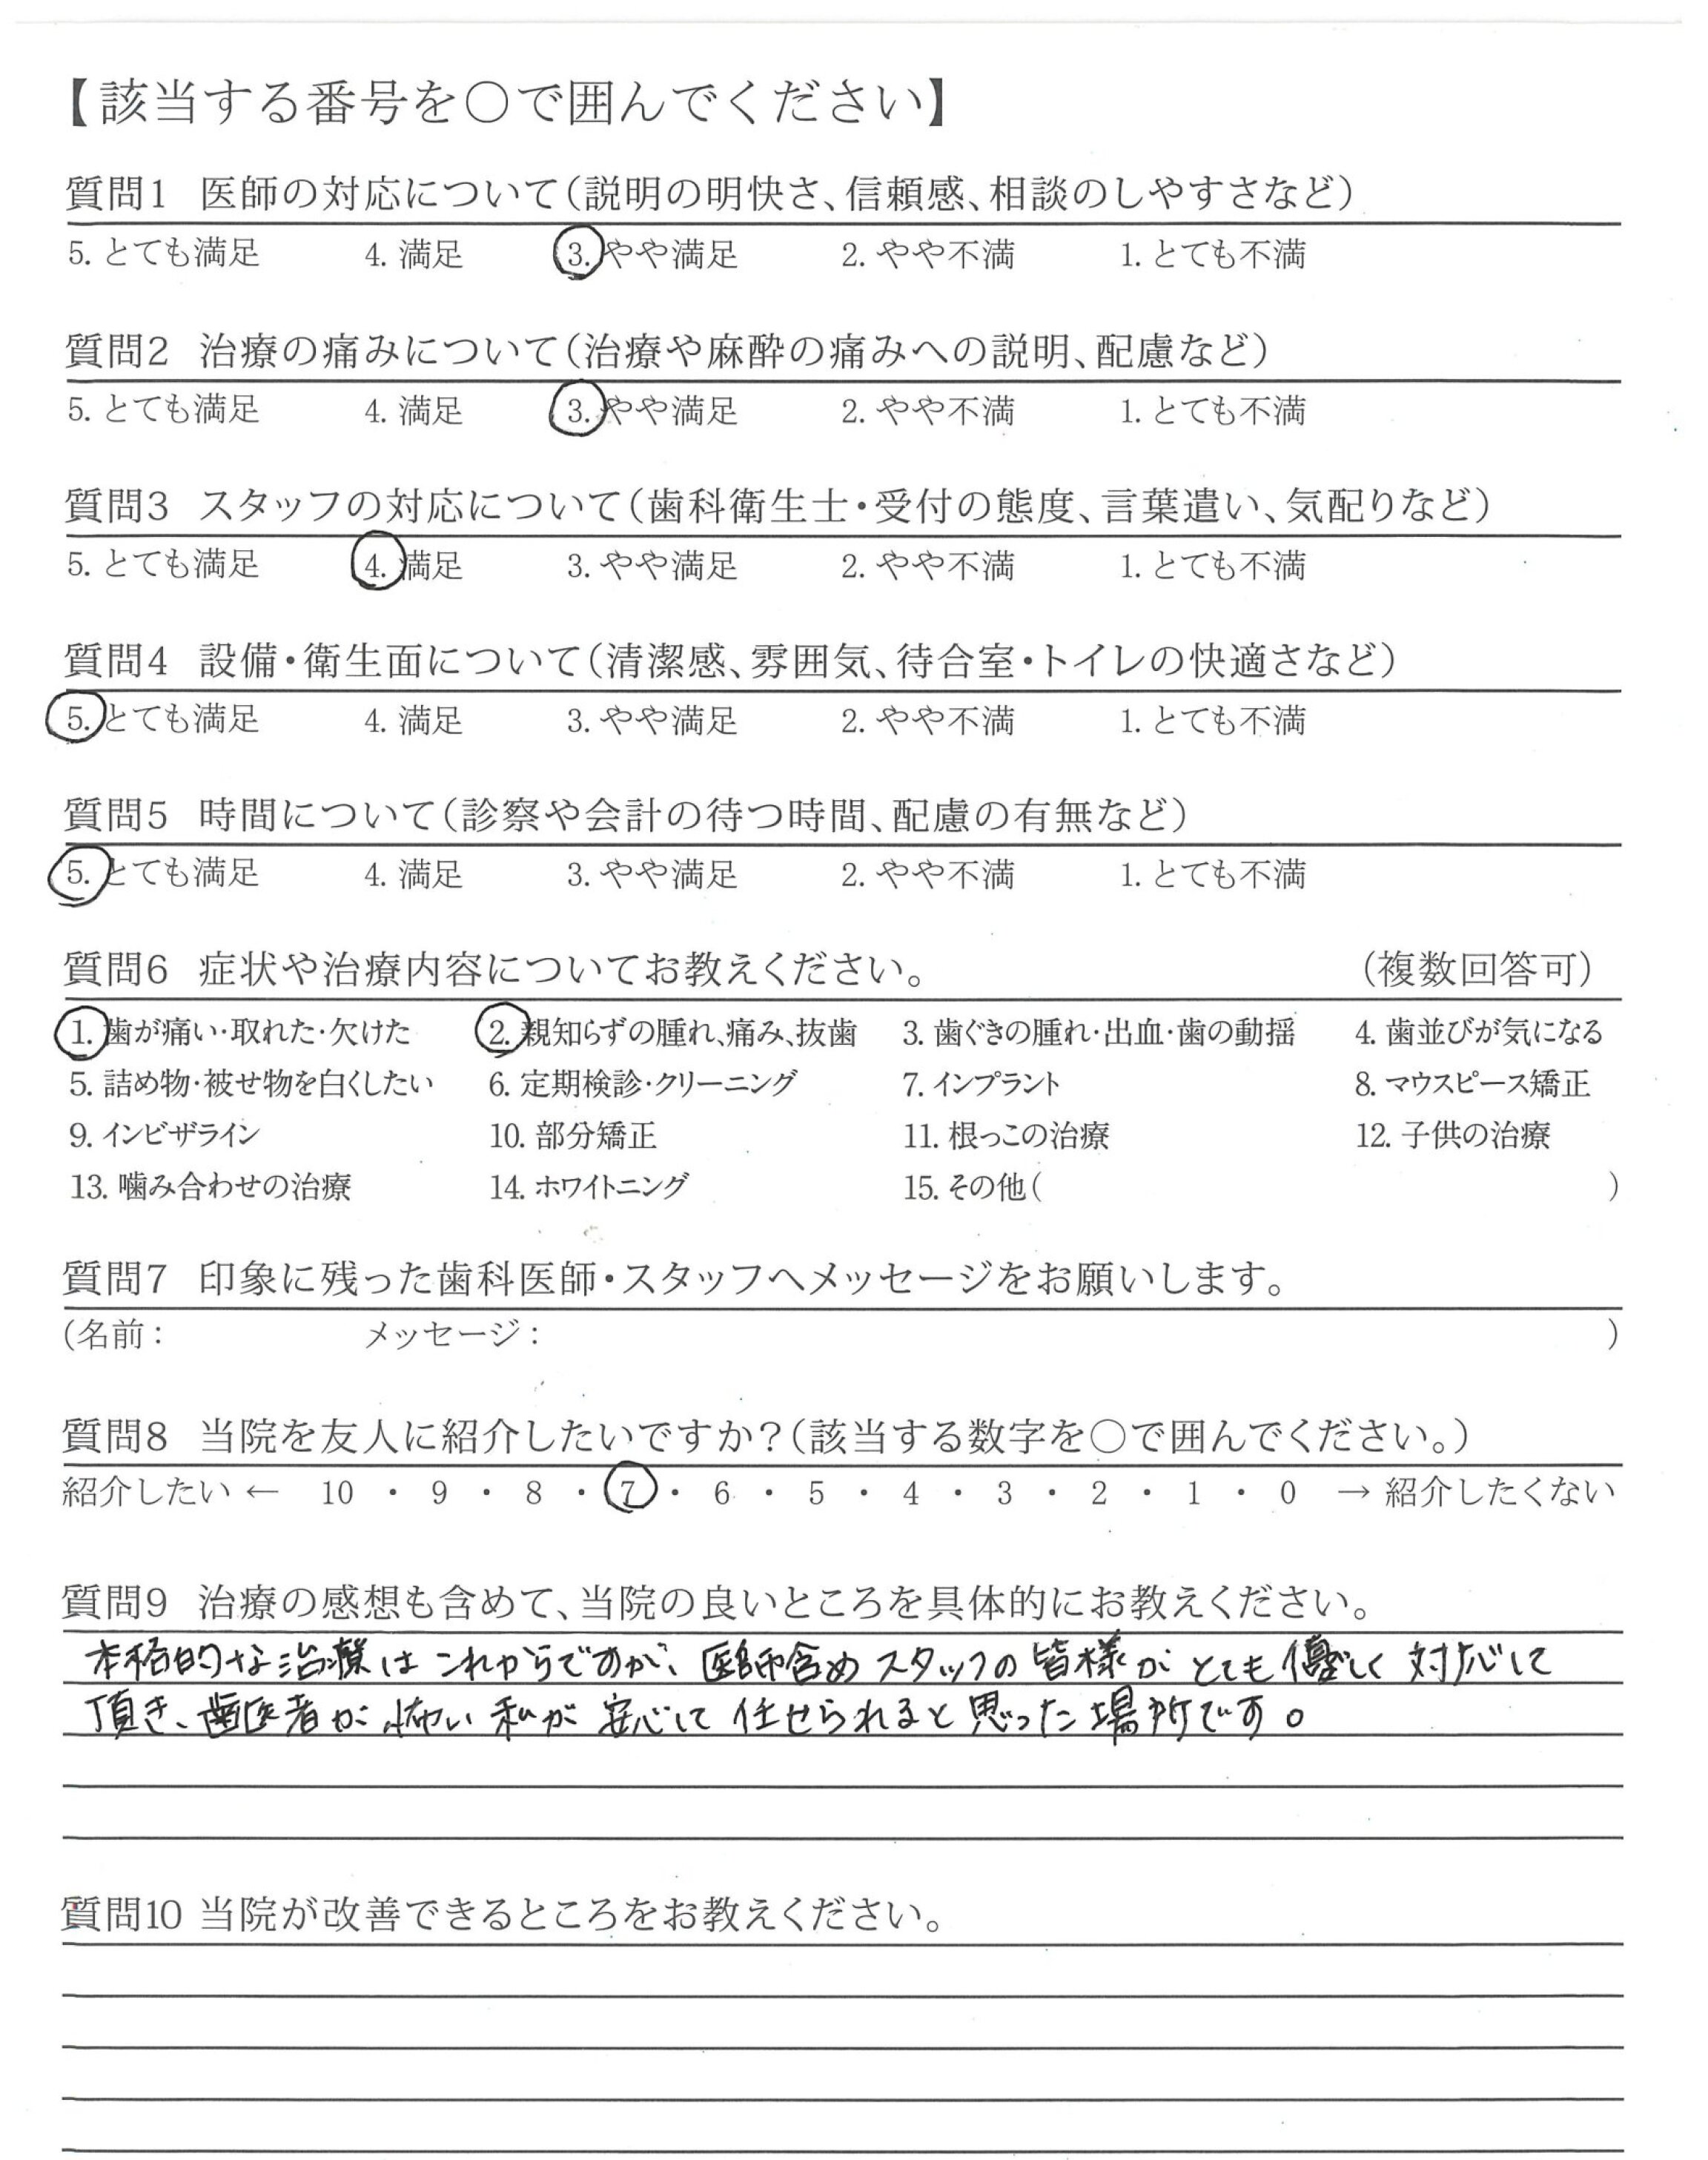 【該当する番号を○で囲んでください】
質問1 医師の対応について（説明の明快さ、信頼感、相談のしやすさなど）
5. とても満足 4. 満足 3. やや満足 2. やや不満 1. とても不満
質問2 治療の痛みについて（治療や麻酔の痛みへの説明、配慮など）
5. とても満足 4. 満足 3. やや満足 2. やや不満 1. とても不満
質問3 スタッフの対応について（歯科衛生士・受付の態度、言葉遣い、気配りなど）
5. とても満足 4. 満足 3. やや満足 2. やや不満 1. とても不満
質問4 設備・衛生面について（清潔感、雰囲気、待合室・トイレの快適さなど）
5. とても満足 4. 満足 3. やや満足 2. やや不満 1. とても不満
質問5 時間について（診察や会計の待つ時間、配慮の有無など）
5. とても満足 4. 満足 3. やや満足 2. やや不満 1. とても不満
質問6 症状や治療内容についてお教えください。 （複数回答可）
1. 歯が痛い・取れた・欠けた 2. 親知らずの腫れ、痛み、抜歯 3. 歯ぐきの腫れ・出血・歯の動揺 4. 歯並びが気になる
5. 詰め物・被せ物を白くしたい 6. 定期検診・クリーニング 7. インプラント 8. マウスピース矯正
9. インビザライン 10. 部分矯正 11. 根っこの治療 12. 子供の治療
13. 噛み合わせの治療 14. ホワイトニング 15. その他（ ）
質問7 印象に残った歯科医師・スタッフへメッセージをお願いします。
（名前： メッセージ： ）
質問8 当院を友人に紹介したいですか？（該当する数字を○で囲んでください。）
紹介したい ← 10 ・ 9 ・ 8 ・ 7 ・ 6 ・ 5 ・ 4 ・ 3 ・ 2 ・ 1 ・ 0 → 紹介したくない
質問9 治療の感想も含めて、当院の良いところを具体的にお教えください。
本格的な治療はこれからですが、医師含めスタッフの皆様がとても優しく対応して
頂き、歯医者が怖い私が安心して任せられると思った場所です。
質問10 当院が改善できるところをお教えください。